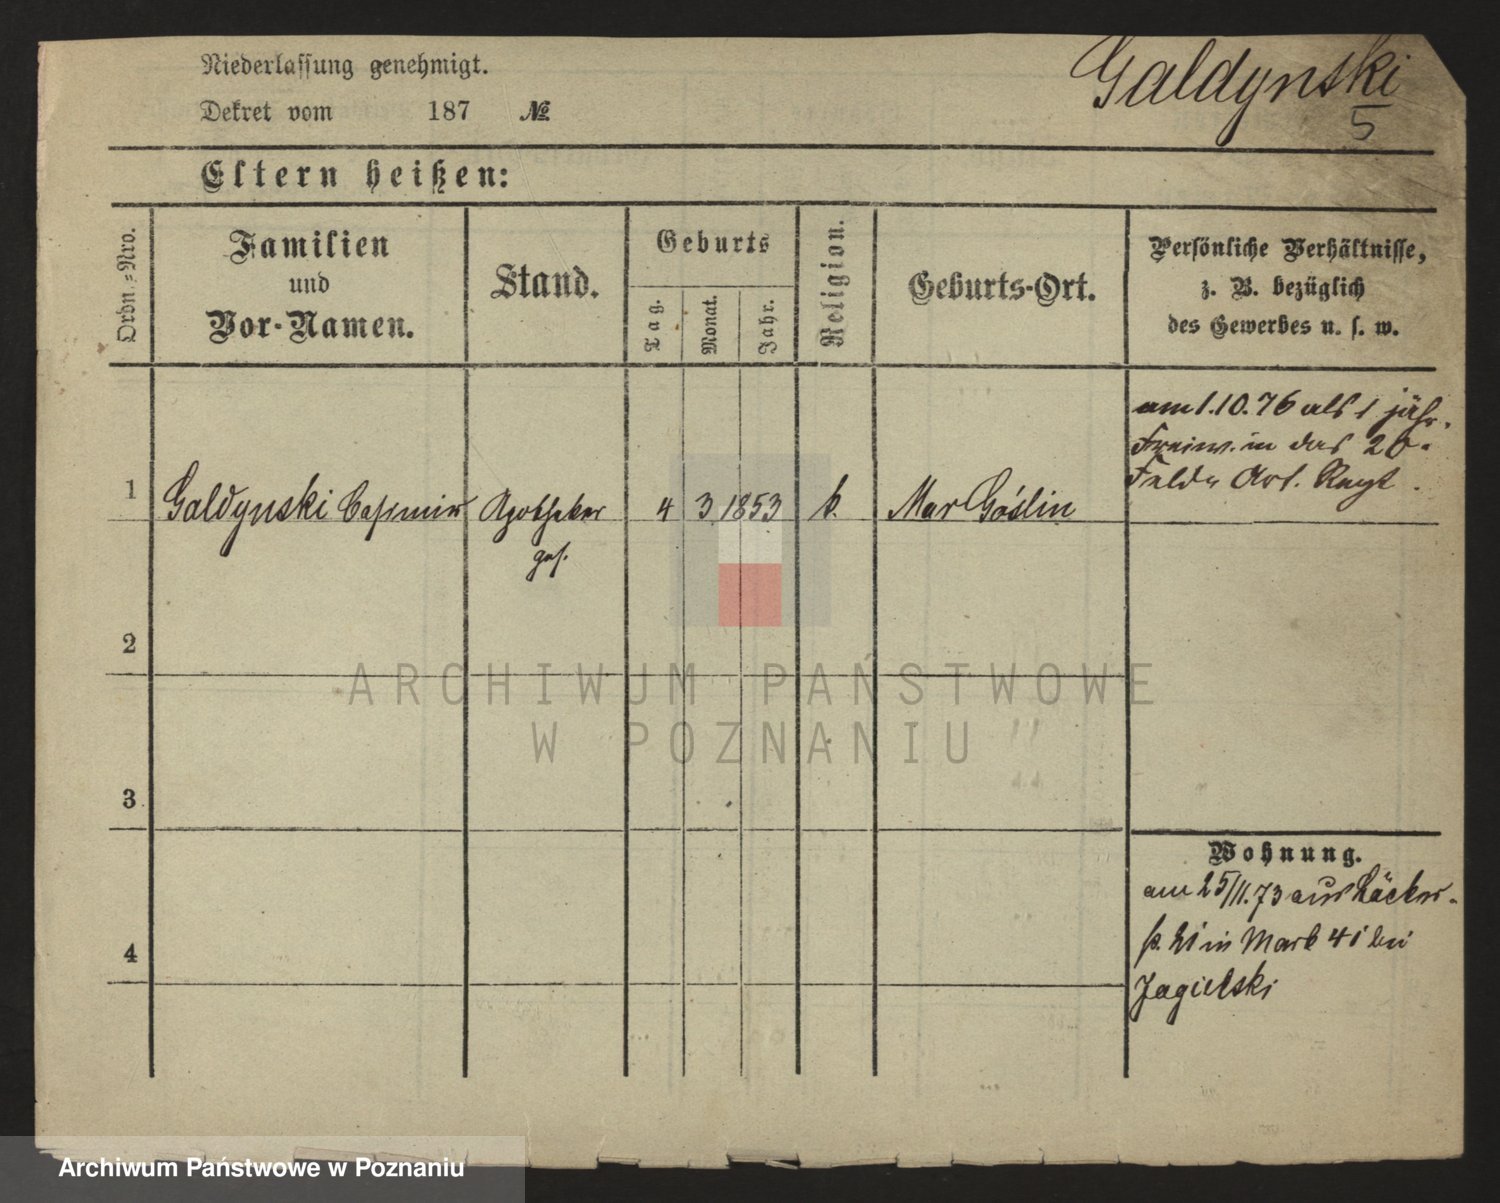 Niederlassung genehmigt.
Galdynski
Dekret vom 187 №
5
Eltern heißen:
Ordn.-Nro.
Familien
und
Vor-Namen.
Stand.
Geburts
Tag.
Monat.
Jahr.
Religion.
Geburts-Ort.
Persönliche Verhältnisse,
z. B. bezüglich
des Gewerbes u. s. w.
1 Galdynski Casimir Apotheker 4 3 1853 k. Mur Góslin
geh.
am 1.10.76 als 1 jähr.
Freiw. in das 20.
Feld Art. Regt.
2
3
4
Wohnung.
am 25/11.73 aus Bäcker-
st. 21 in Markt 41 bei
Jagielski
ARCHIWUM PAŃSTWOWE
W POZNANIU
Archiwum Państwowe w Poznaniu